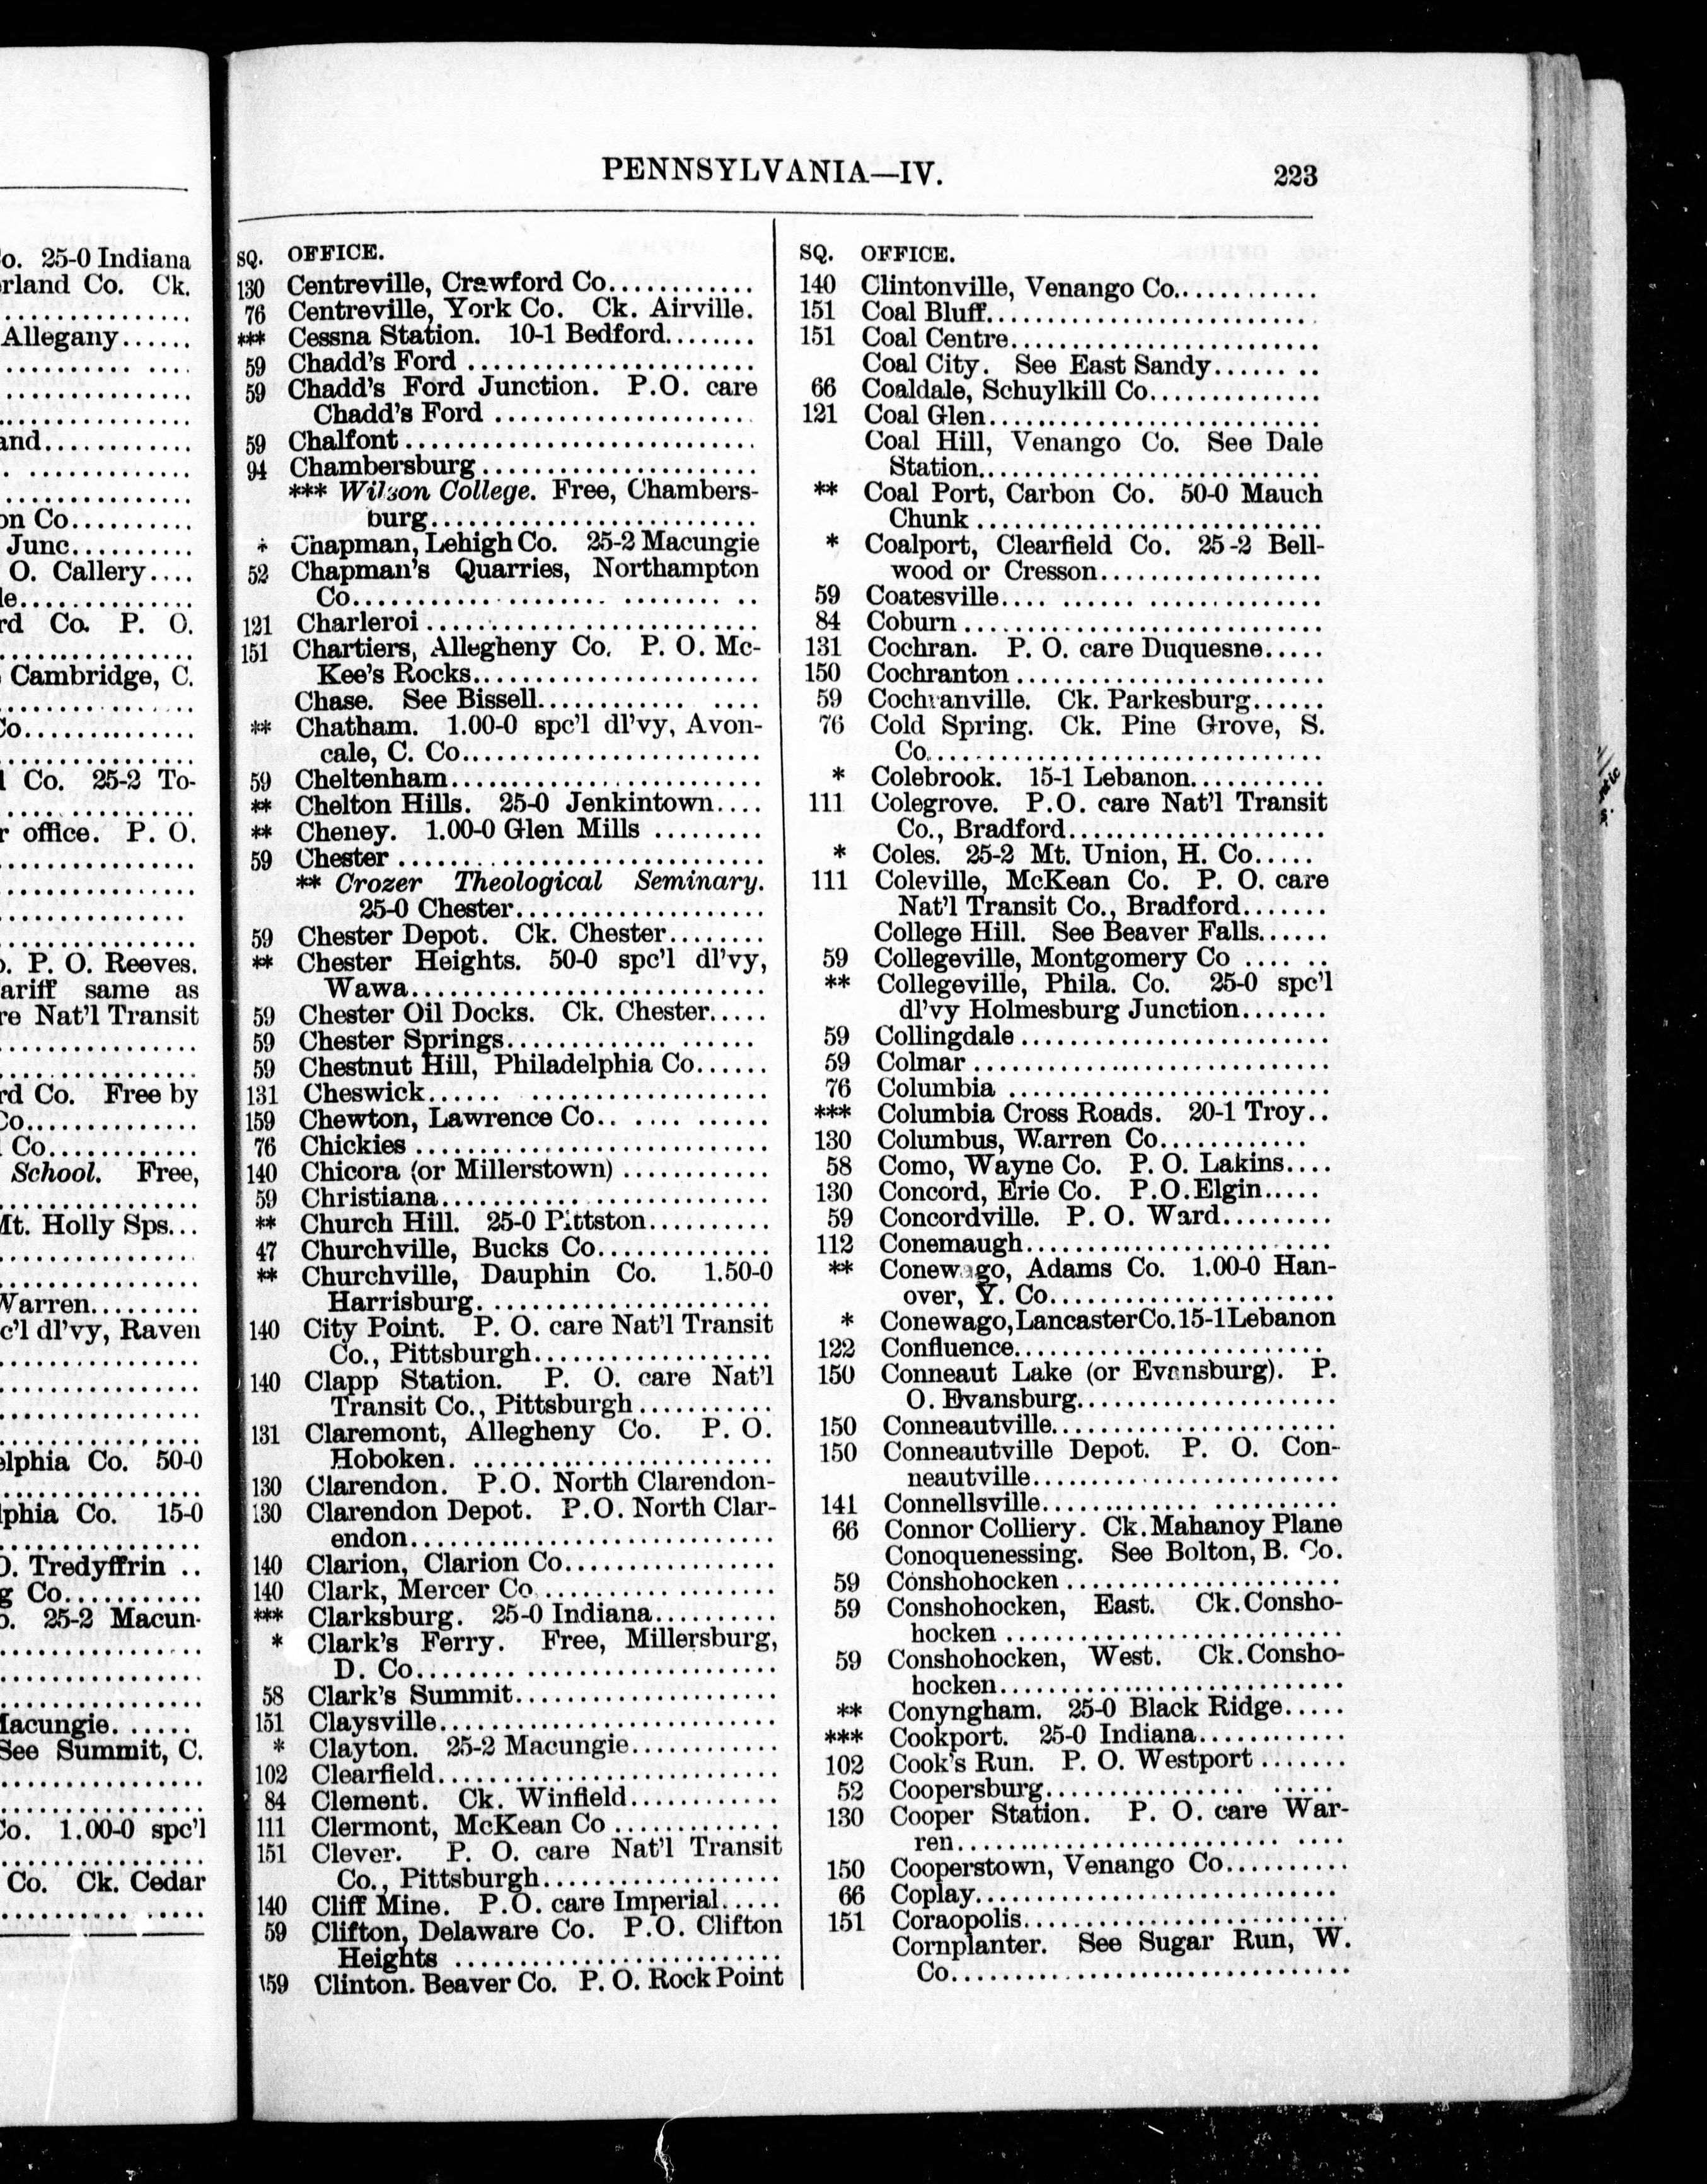 o. 25-0 Indiana
rland Co. Ck.
Allegany......
and..........
on Co..........
Junc..........
O. Callery....
le..............
rd Co. P. O.
Cambridge, C.
Co..............
Co. 25-2 To-
r office. P. O.
o. P. O. Reeves.
ariff same as
re Nat'l Transit
rd Co. Free by
Co..............
Co..............
School. Free,
Mt. Holly Sps...
Warren.........
c'l dl'vy, Raven
elphia Co. 50-0
lphia Co. 15-0
O. Tredyffrin ..
g Co............
o. 25-2 Macun-
Macungie.......
See Summit, C.
Co. 1.00-0 spc'l
Co. Ck. Cedar
PENNSYLVANIA—IV.
223
SQ. OFFICE.
130 Centreville, Crawford Co............
76 Centreville, York Co. Ck. Airville.
*** Cessna Station. 10-1 Bedford........
59 Chadd's Ford ......................
59 Chadd's Ford Junction. P.O. care
Chadd's Ford ....................
59 Chalfont ............................
94 Chambersburg......................
*** Wilson College. Free, Chambers-
burg..........................
* Chapman, Lehigh Co. 25-2 Macungie
52 Chapman's Quarries, Northampton
Co..................................
121 Charleroi ...........................
151 Chartiers, Allegheny Co. P. O. Mc-
Kee's Rocks.......................
Chase. See Bissell............ ....
** Chatham. 1.00-0 spc'l dl'vy, Avon-
cale, C. Co........................
59 Cheltenham.........................
** Chelton Hills. 25-0 Jenkintown....
** Cheney. 1.00-0 Glen Mills .........
59 Chester .............................
** Crozer Theological Seminary.
25-0 Chester....................
59 Chester Depot. Ck. Chester........
** Chester Heights. 50-0 spc'l dl'vy,
Wawa.............................
59 Chester Oil Docks. Ck. Chester.....
59 Chester Springs............. ......
59 Chestnut Hill, Philadelphia Co......
131 Cheswick...... ....................
159 Chewton, Lawrence Co.. .... ......
76 Chickies ............................
140 Chicora (or Millerstown) ............
59 Christiana..........................
** Church Hill. 25-0 Pittston..........
47 Churchville, Bucks Co..............
** Churchville, Dauphin Co. 1.50-0
Harrisburg........................
140 City Point. P. O. care Nat'l Transit
Co., Pittsburgh...................
140 Clapp Station. P. O. care Nat'l
Transit Co., Pittsburgh...........
131 Claremont, Allegheny Co. P. O.
Hoboken. ........................
130 Clarendon. P.O. North Clarendon-
130 Clarendon Depot. P.O. North Clar-
endon.............................
140 Clarion, Clarion Co.................
140 Clark, Mercer Co...................
*** Clarksburg. 25-0 Indiana..........
* Clark's Ferry. Free, Millersburg,
D. Co........ ....................
58 Clark's Summit.....................
151 Claysville...........................
* Clayton. 25-2 Macungie............
102 Clearfield...........................
84 Clement. Ck. Winfield............
111 Clermont, McKean Co .............
151 Clever. P. O. care Nat'l Transit
Co., Pittsburgh...................
140 Cliff Mine. P.O. care Imperial.....
59 Clifton, Delaware Co. P.O. Clifton
Heights ..........................
159 Clinton. Beaver Co. P. O. Rock Point
SQ. OFFICE.
140 Clintonville, Venango Co............
151 Coal Bluff...........................
151 Coal Centre.........................
Coal City. See East Sandy...... ..
66 Coaldale, Schuylkill Co..............
121 Coal Glen...........................
Coal Hill, Venango Co. See Dale
Station............................
** Coal Port, Carbon Co. 50-0 Mauch
Chunk ............................
* Coalport, Clearfield Co. 25-2 Bell-
wood or Cresson..................
59 Coatesville.... ...... ..............
84 Coburn .............................
131 Cochran. P. O. care Duquesne.....
150 Cochranton .........................
59 Cochranville. Ck. Parkesburg......
76 Cold Spring. Ck. Pine Grove, S.
Co.................................
* Colebrook. 15-1 Lebanon...........
111 Colegrove. P.O. care Nat'l Transit
Co., Bradford.....................
* Coles. 25-2 Mt. Union, H. Co.....
111 Coleville, McKean Co. P. O. care
Nat'l Transit Co., Bradford.......
College Hill. See Beaver Falls......
59 Collegeville, Montgomery Co .... ..
** Collegeville, Phila. Co. 25-0 spc'l
dl'vy Holmesburg Junction.......
59 Collingdale .........................
59 Colmar .............................
76 Columbia ...........................
*** Columbia Cross Roads. 20-1 Troy..
130 Columbus, Warren Co............
58 Como, Wayne Co. P. O. Lakins....
130 Concord, Erie Co. P.O.Elgin.....
59 Concordville. P. O. Ward.........
112 Conemaugh.........................
** Conewago, Adams Co. 1.00-0 Han-
over, Y. Co........................
* Conewago, Lancaster Co. 15-1 Lebanon
122 Confluence..........................
150 Conneaut Lake (or Evansburg). P.
O. Evansburg.....................
150 Conneautville.......................
150 Conneautville Depot. P. O. Con-
neautville.........................
141 Connellsville............. ..........
66 Connor Colliery. Ck. Mahanoy Plane
Conoquenessing. See Bolton, B. Co.
59 Conshohocken ......................
59 Conshohocken, East. Ck. Consho-
hocken ...........................
59 Conshohocken, West. Ck. Consho-
hocken............................
** Conyngham. 25-0 Black Ridge.....
*** Cookport. 25-0 Indiana............
102 Cook's Run. P. O. Westport .......
52 Coopersburg................ ......
130 Cooper Station. P. O. care War-
ren.......................... ....
150 Cooperstown, Venango Co..........
66 Coplay..............................
151 Coraopolis..........................
Cornplanter. See Sugar Run, W.
Co.................................